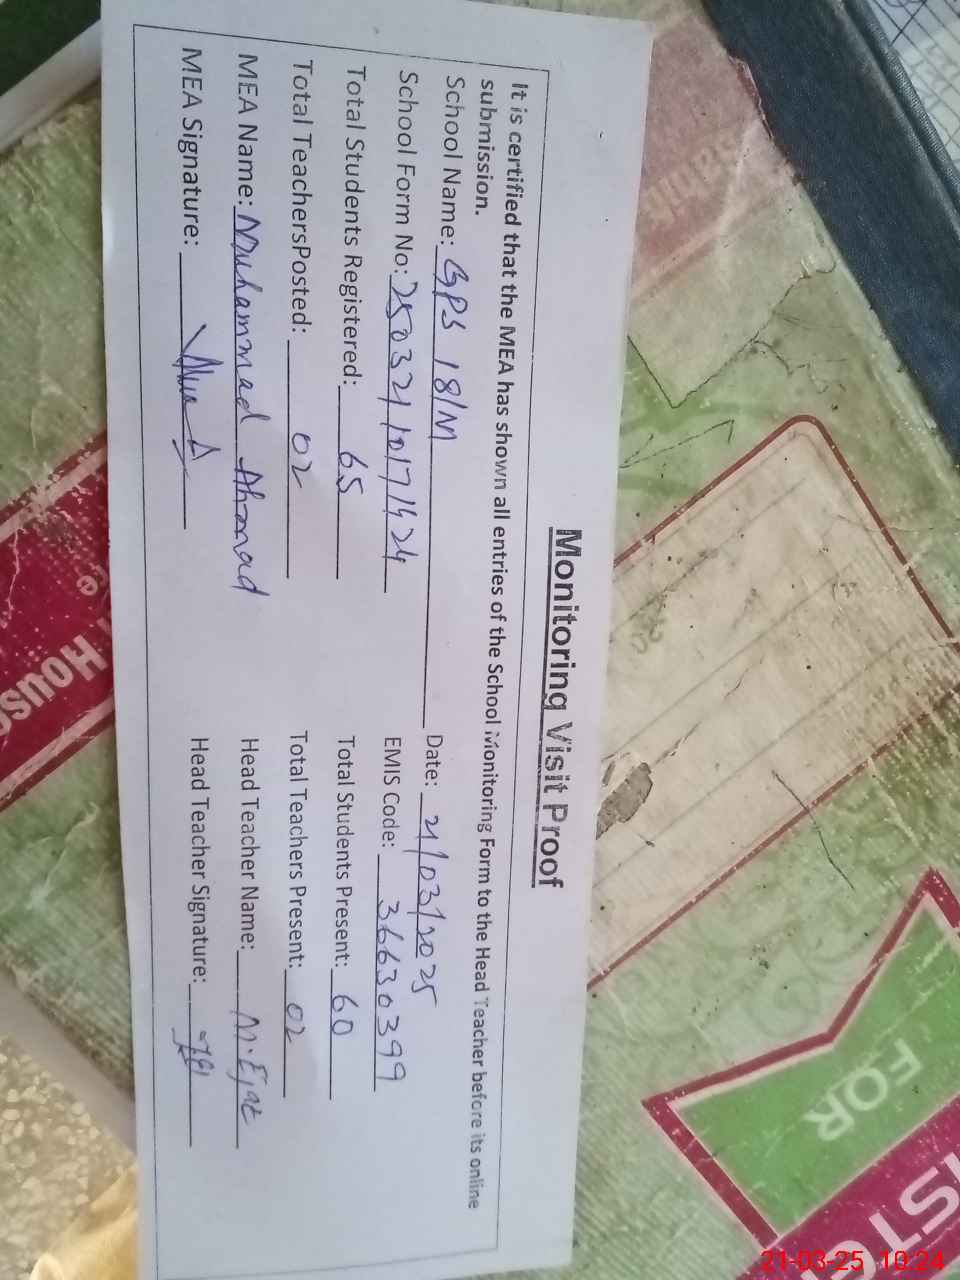 Monitoring Visit Proof
It is certified that the MEA has shown all entries of the School Monitoring Form to the Head Teacher before its online
submission.
School Name: GPS 18/M Date: 21/03/2025
School Form No: 250321101711424 EMIS Code: 36630399
Total Students Registered: 65 Total Students Present: 60
Total TeachersPosted: 02 Total Teachers Present: 02
MEA Name: Muhammad Ahmad Head Teacher Name: M. Ejaz
MEA Signature: Head Teacher Signature:
FOR
HOUS
21-03-25 10:24